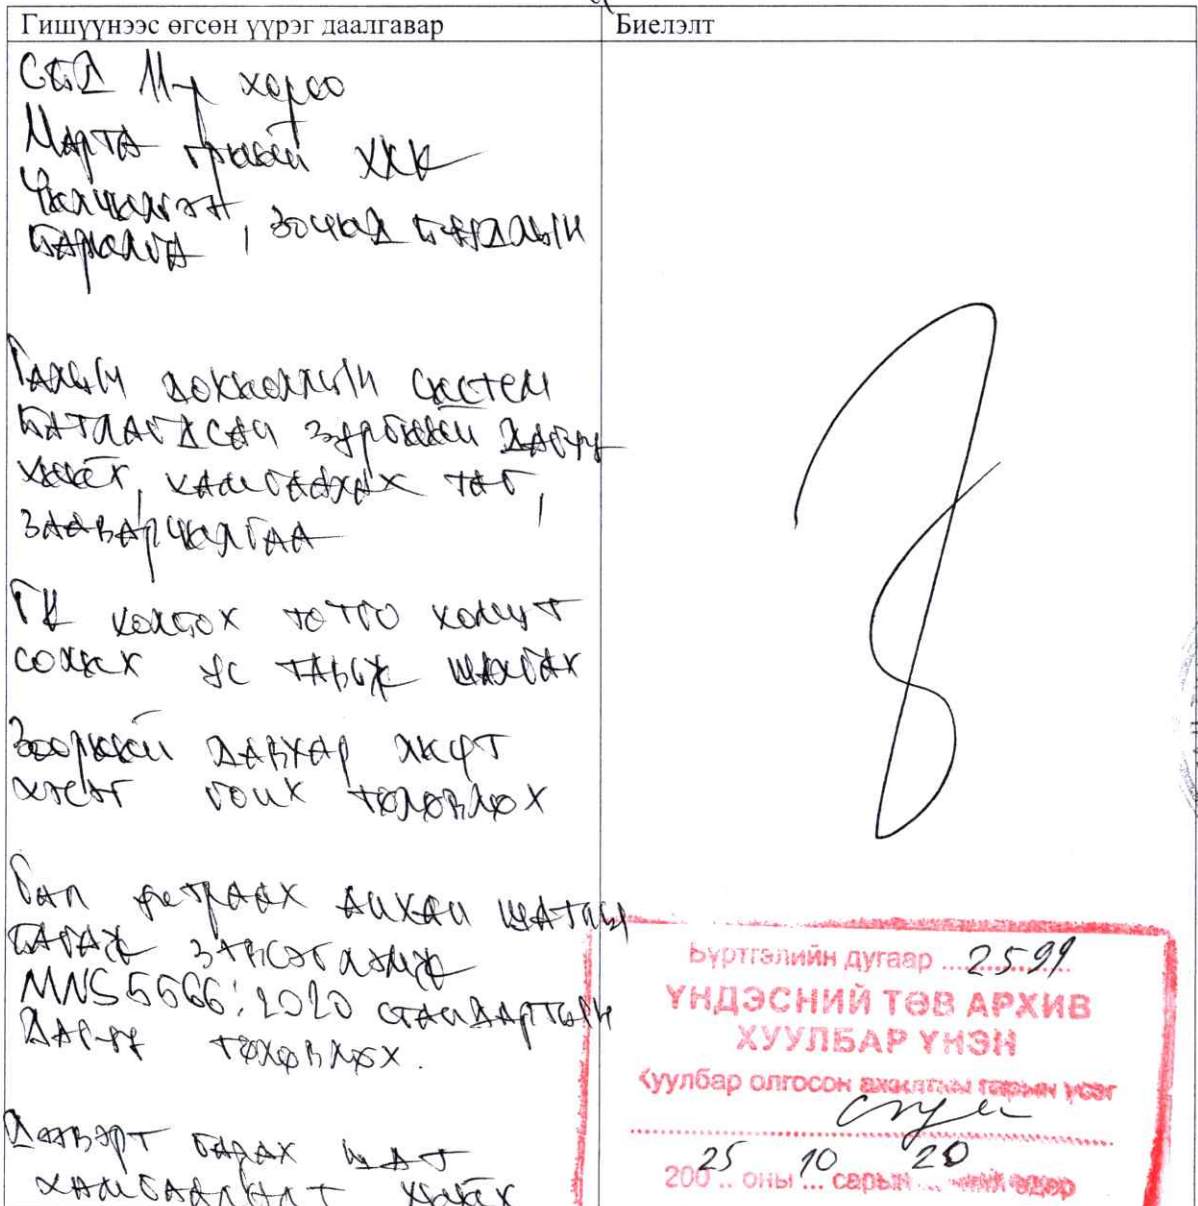 Гишүүнээс өгсөн үүрэг даалгавар
Биелэлт
СБД 11-р хороо
Марта ХХК
Үйлчилгээ
барилга, зочид буудлын
Галын дохиоллын систем
батлагдсан зургийн дагуу
хийх, хамгаалах таг,
зааварчилгаа
ГК холбох тотго хомут
солих ус тавьж шахах
Зоорийн давхар лифт
хэсэг гоик төлөвлөх
Гал унтраах анхан шатны
багаж хэрэгсэл
MNS 5566:2020 стандартын
дагуу төлөвлөх.
Дээвэрт гарах шат
хамгаалалт хийх
Бүртгэлийн дугаар 2599
ҮНДЭСНИЙ ТӨВ АРХИВ
ХУУЛБАР ҮНЭН
Хуулбар олгосон ажилтны гарын үсэг
200 25 оны 10 сарын 20 ний өдөр